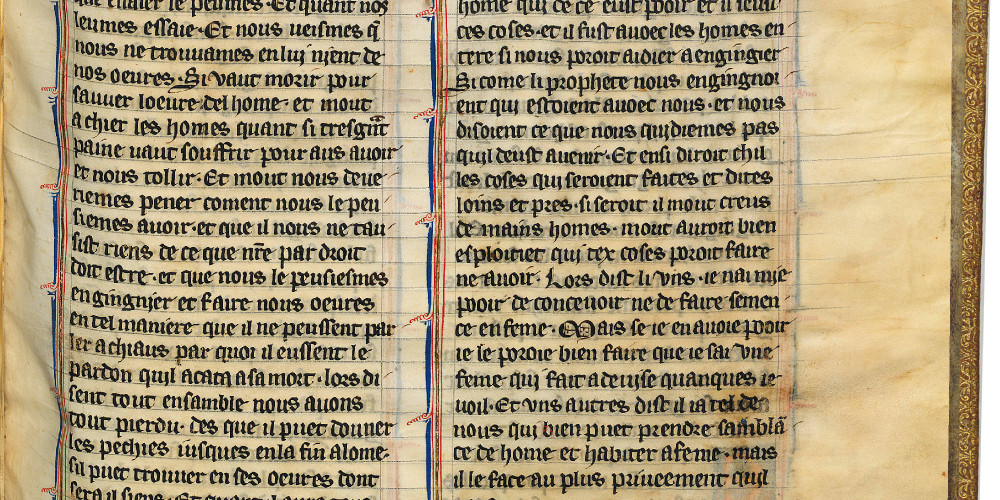 que enaier le peumes. Et quant nos
leumes essaie. Et nous veismes q̄
nous ne trouuames en lui nient de
nos oeures. Si vaut morir pour
sauuer loeure del home. et mout
a chier les homes quant si tresgn̄t
paine vaut souffrir pour aus auoir
et nous tollir. Et mout nous deue
riemes pener coment nous le peu
siemes auoir. et que il nous ne tau
sist riens de ce que nr̄e par droit
doit estre. et que nous le peusiesmes
engingnier et faire nous oeures
en tel maniere que il ne peussent par
ler a chiaus par quoi il eussent le
pardon quil acata a sa mort. lors di
sent tout ensamble nous auons
tout pierdu. des que il puet donner
les pechies iusques en la fin alome.
sil puet trouuer en ses oeures dont
sera il siens. Et
home qui ce ce eust pooir et il seust
ces coses. et il fust auoec les homes en
tere si nous poroit aidier a engingier
Si come li prophete nous engingnoi
ent qui estoient auoec nous. et nous
disoient ce que nous quidiemes pas
quil deust auenir. Et ensi diroit chil
les coses qui seroient faites et dites
loins et pres. si seroit il mout creus
de mains homes. mout auroit bien
esploitiet qui tex coses poroit faire
ne auoir. Lors dist li vns. ie nai mie
pooir de conceuoir ne de faire semen
ce en feme. Mais se ie en auoie pooir
ie le poroie bien faire que ie sai vne
feme qui fait a deuise quanques ie
uoil. Et vns autres dist il ia tel de
nous qui bien puet prendre sambla
ce de home et habiter a feme. mais
il le face au plus priueement quil